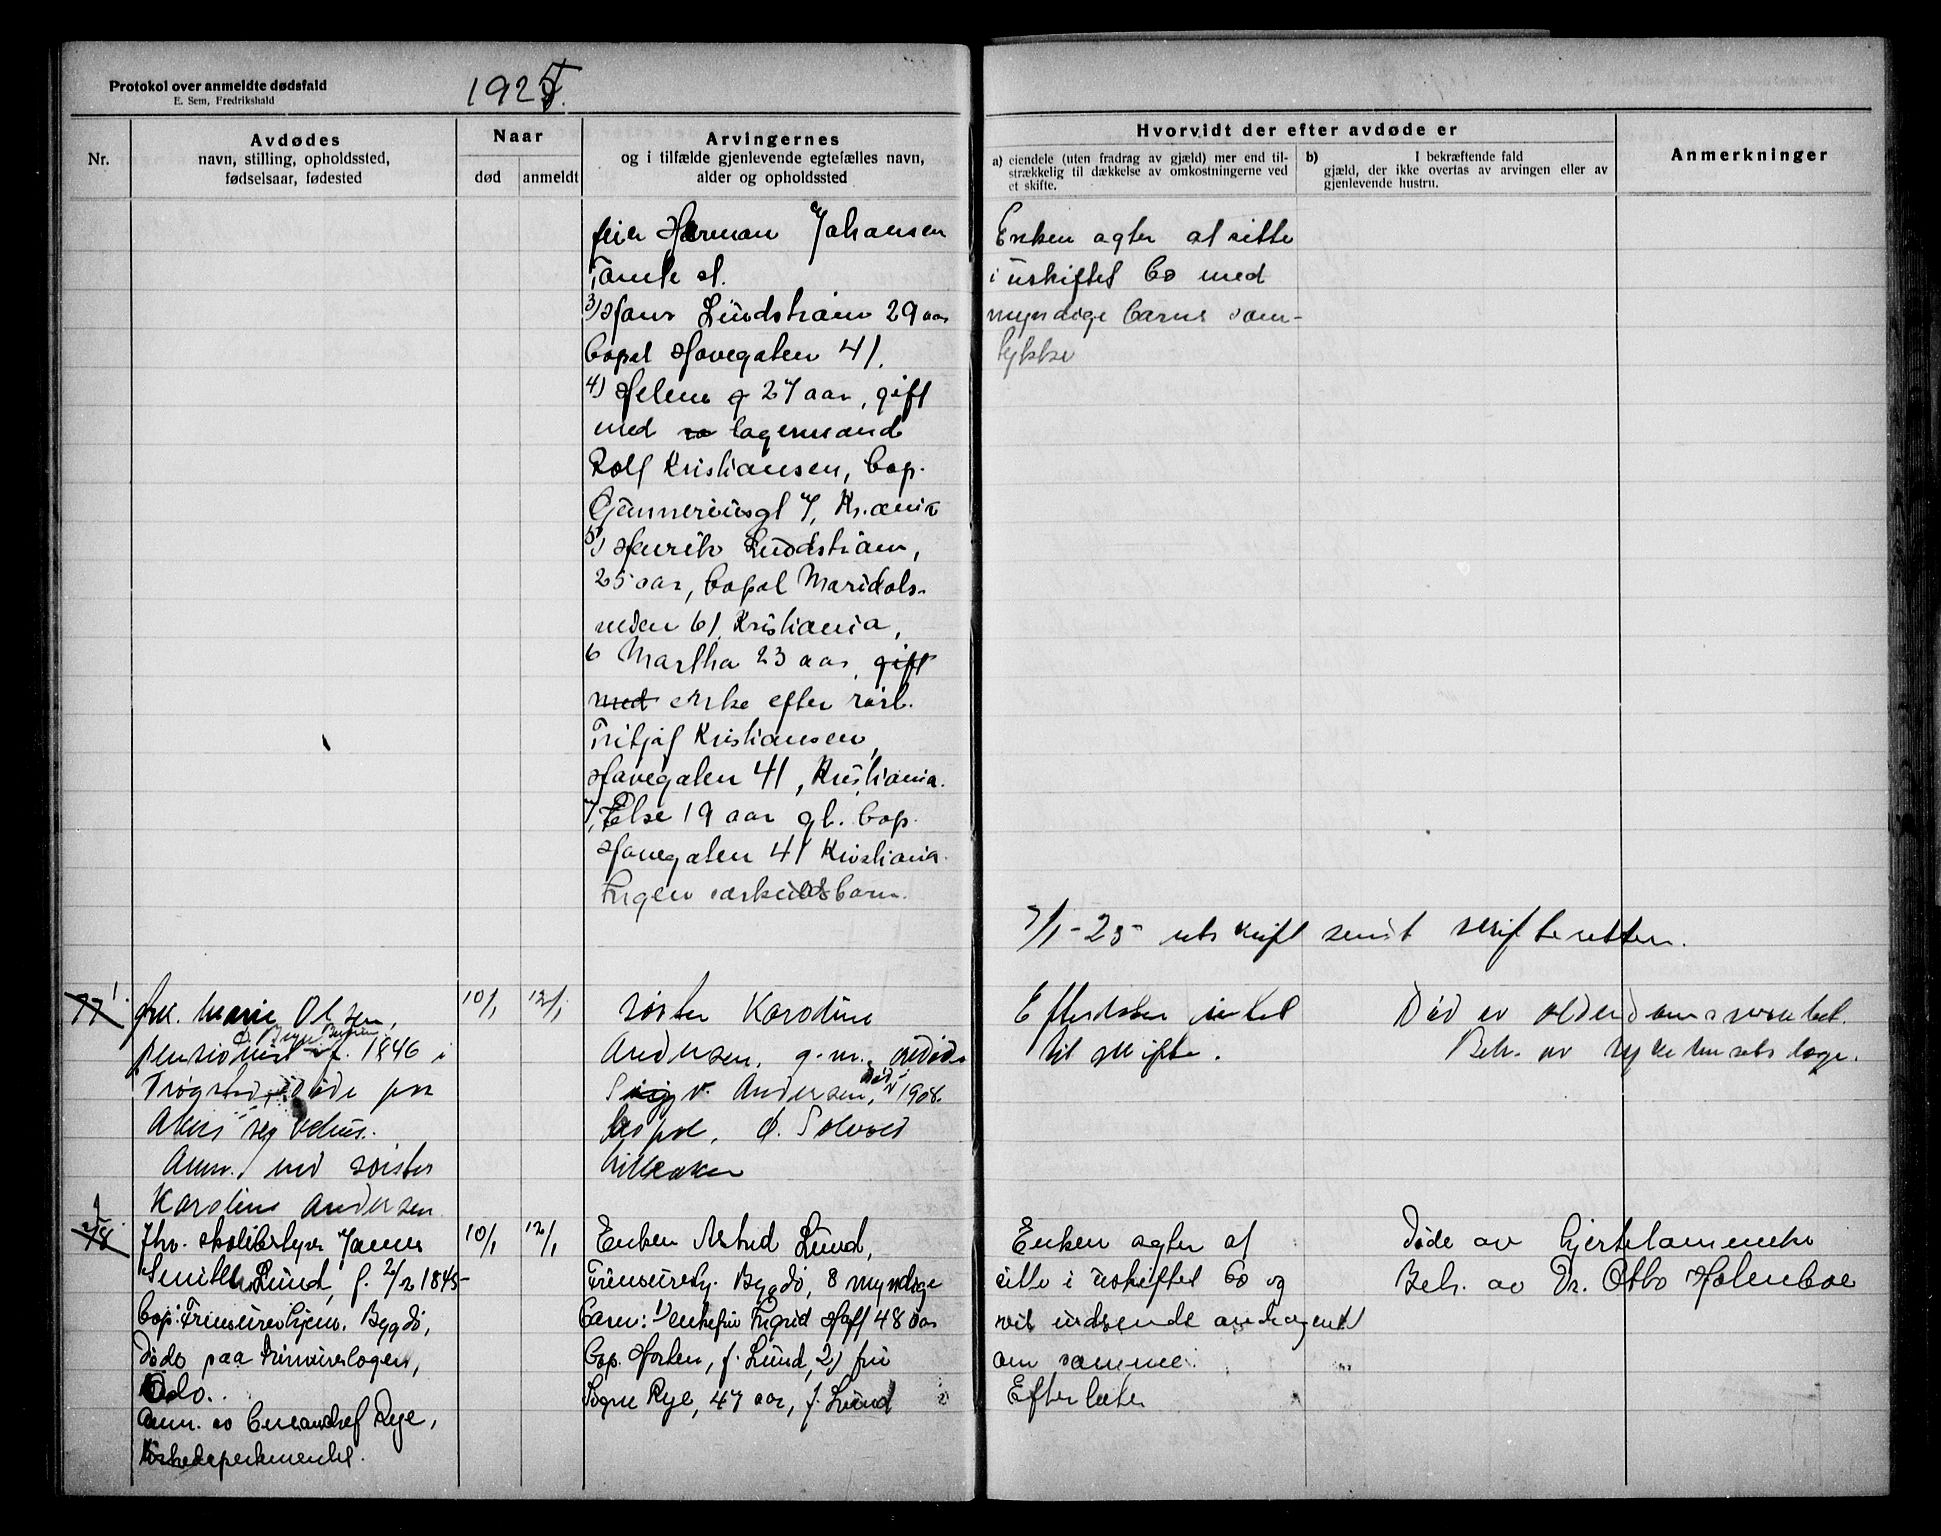 Protokol over anmeldte dødsfald
E. Sem, Fredrikshald
1925.
Nr.
Avdødes
navn, stilling, opholdssted,
fødselsaar, fødested
Naar
død
anmeldt
Arvingernes
og i tilfælde gjenlevende egtefælles navn,
alder og opholdssted
Hvorvidt der efter avdøde er
a) eiendele (uten fradrag av gjæld) mer end til-
strækkelig til dækkelse av omkostningerne ved
et skifte.
b) I bekræftende fald
gjæld, der ikke overtas av arvingen eller av
gjenlevende hustru.
Anmerkninger
Herman Johansen
Tomte st.
3) Hans Lundstrøm 29 aar
bopæl Havegaten 41.
4) Helene g 27 aar, gift
med lagermand
Rolf Kristiansen, bop.
Gunnerusgt 7, Kr.ania
5) Henrik Lundstrøm,
25 aar, bopæl Maridals-
veien 61 Kristiania,
6 Martha 23 aar, gift
med enke efter rørl.
Fritjof Kristiansen,
Havegaten 41, Kristiania.
7, Else 19 aar gl. bop.
Havegaten 41 Kristiania.
Ingen særkuldsbarn.
Enken agter at sitte
i uskiftet bo med
myndige barns sam-
tykke
7/1-25 utskrift sendt skifteretten.
77 1
frk. Marie Olsen,
pensionist f. 1846 i
Trøgstad, døde paa
Akers sykehus.
Anm. ved søster
Karoline Andersen
10/1
12/1
søster Karoline
Andersen, g.m. avdøde
Sigv. Andersen, død 1908.
bopæl, Ø. Solveld
Lilleaker
Efterlater intet
til skifte.
Død av alderdomssvakhet.
Bek. av sykehusets læge.
78
Fhv. skolebestyrer James
Smith Lund, f. 2/2 1845
bop: Frimurerhjem. Bygdø,
døde paa Frimurerlogen,
Oslo.
Anm. av bureauchef Rye,
Kirkedepartementet.
10/1
12/1
Enken Astrid Lund,
Frimurerhj. Bygdø, 8 myndige
barn: 1) enkefru Ingrid Hoff 48 aar
bop. Horten, f. Lund, 2) fru
Signe Rye, 47 aar, f. Lund
Enken agter at
sitte i uskiftet bo og
vil indsende andragende
om samme.
Efterlater
Døde av hjertelammelse
Bek. av Dr. Otto Holmboe